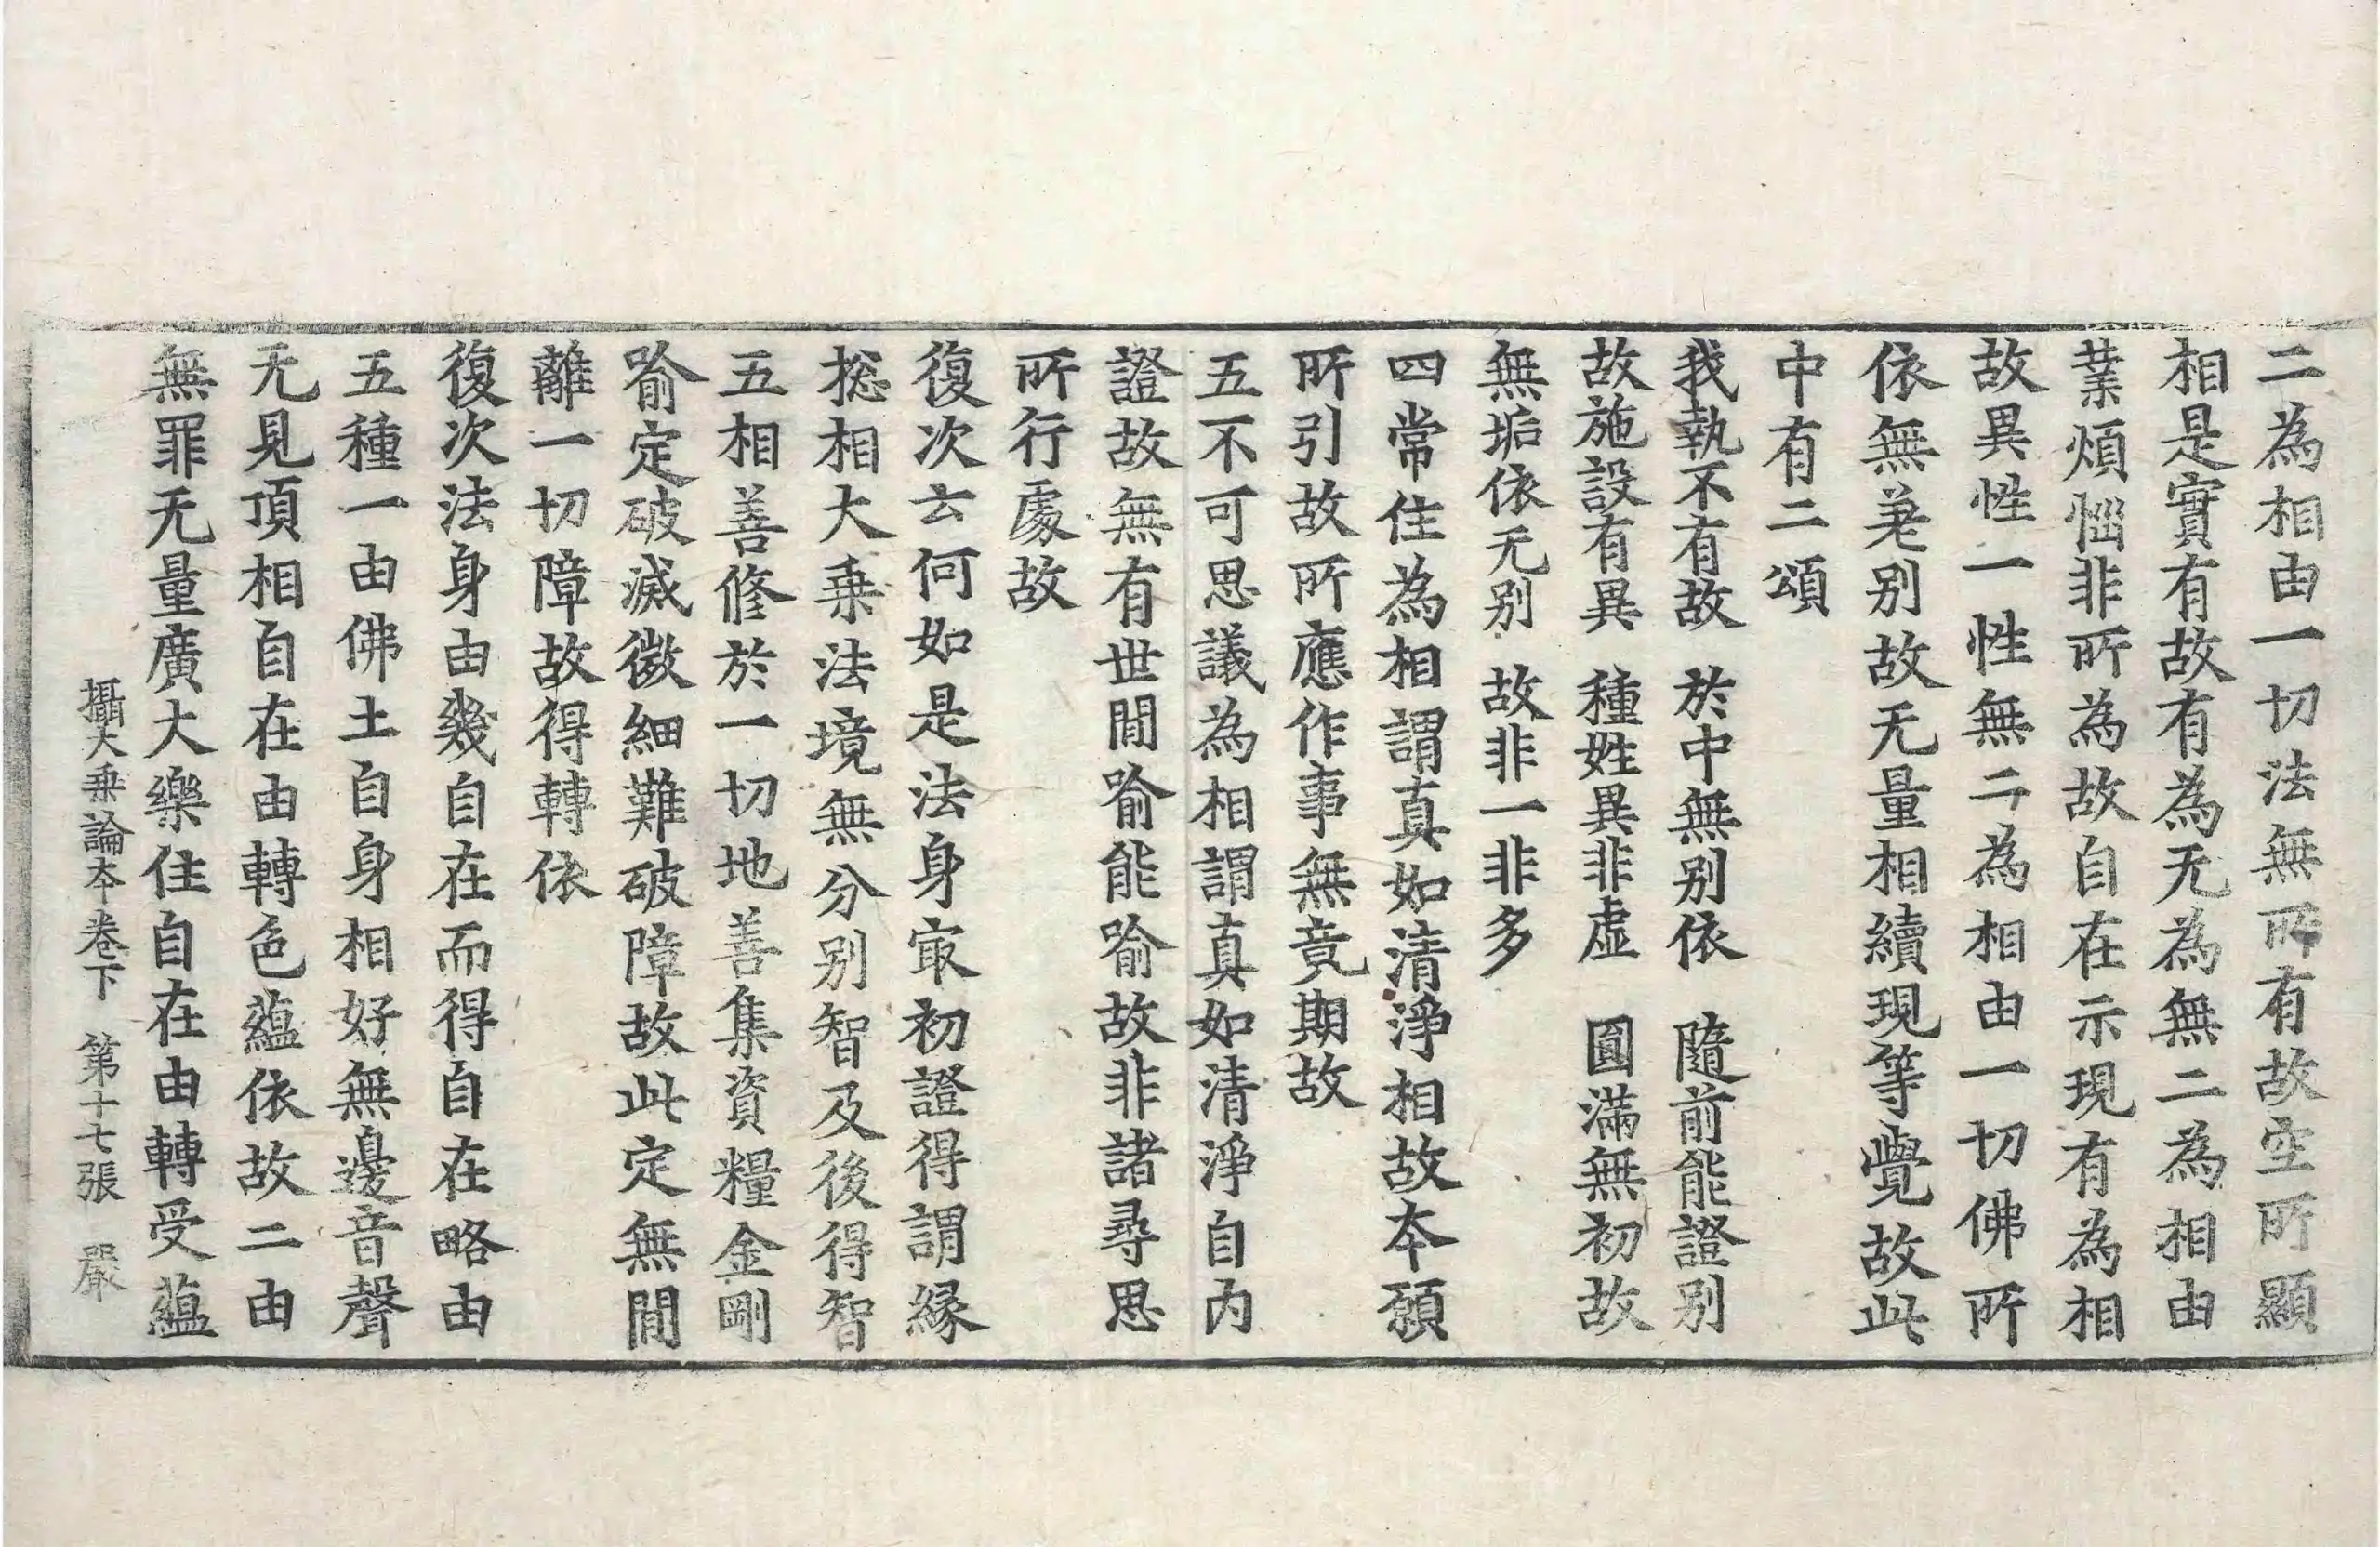 二為相由一切法無所有故空所顯
相是實有故有為无為無二為相由
業煩惱非所為故自在示現有為相
故異性一性無二為相由一切佛所
依無差别故无量相續現等覺故此
中有二頌
我執不有故 於中無别依 隨前能證别
故施設有異 種姓異非虛 圓滿無初故
無垢依无别 故非一非多
四常住為相謂真如清淨相故夲願
所引故所應作事無竟期故
五不可思議為相謂真如清淨自内
證故無有世間喻能喻故非諸尋思
所行處故
復次云何如是法身㝡初證得謂縁
揔相大乗法境無分别智及後得智
五相善修於一切地善集資糧金剛
喻定破滅微細難破障故此定無間
離一切障故得轉依
復次法身由幾自在而得自在略由
五種一由佛土自身相好無邊音聲
无見頂相自在由轉色蘊依故二由
無罪无量廣大樂住自在由轉受蘊
攝大乗論夲卷下 第十七張 嚴